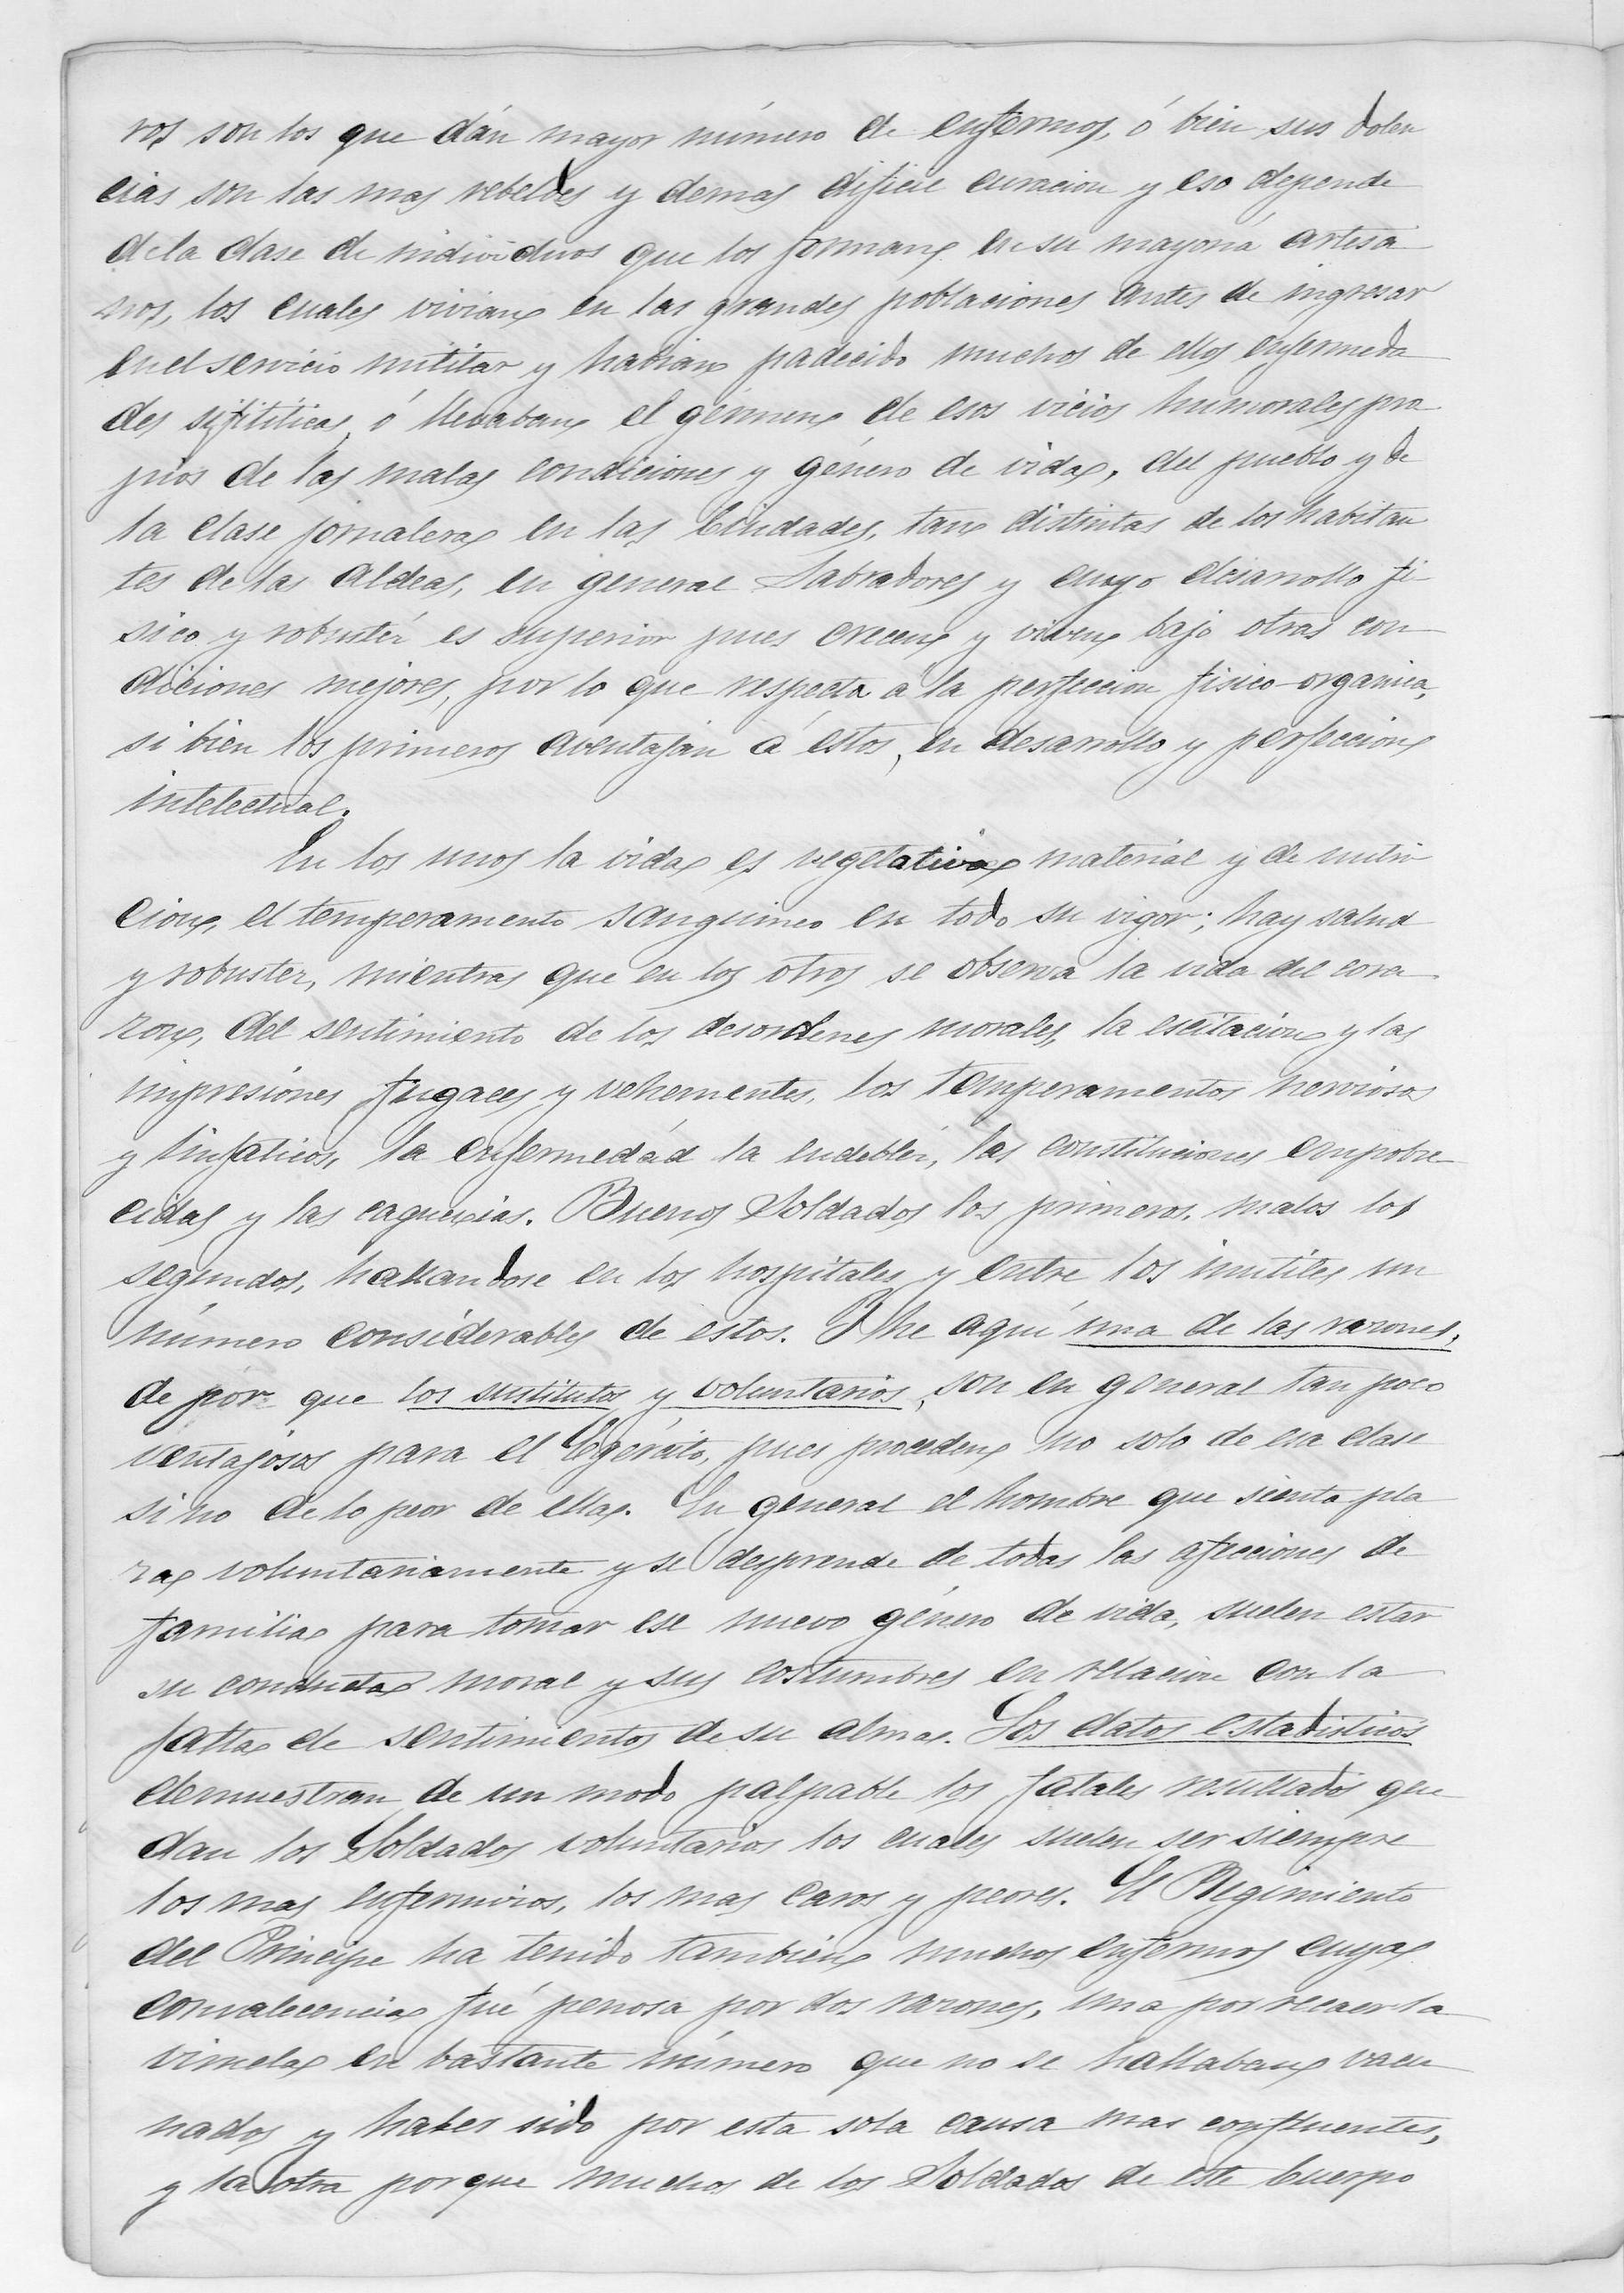 ros son los que dán mayor número de enfermos, ó bien sus dolen
cias son las mas rebeldes y demas dificil curacion y eso depende
dela clase de individuos que los forman en su mayoría artesa
nos, los cuales vivian en las grandes poblaciones antes de ingresar
en el servicio militar y habian padecido muchos de ellos enfermeda
des sifiliticas, ó llevaban el gérmen de esos vicios humorales pro
pios de las malas condiciones y género de vida, del pueblo y de
la clase jornalera en las Ciudades, tan distintas de los habitan
tes de las Aldeas, en general Labradores y cuyo desarrollo fi
sico y robustéz es superior pues crecen y viven bajo otras con
diciones mejores, por lo que respecta a la perfeccion fisico-organica,
si bien los primeros aventajan á estos, en desarrollo y perfeccion
intelectual.
En los unos la vida es vegetativa material y de nutri
cion, el temperamento sanguineo en todo su vigor; hay salud
y robustez, mientras que en los otros se observa la vida del cora
zon, del sentimiento de los desordenes morales, la escitacion y las
impresiones fugaces y vehementes, los temperamentos nerviosos
y linfaticos, la enfermedád la endebléz, las constituciones empobre
cidas y las caquexias. Buenos Soldados los primeros, malos los
segundos, hallandose en los hospitales y entre los inutiles un
número considerables de estos. Y he aquí una de las razones,
de por que los sustitutos y voluntarios, son en general tan poco
ventajosos para el Egército, pues proceden no solo de esa clase
sino de lo peor de ella. En general el hombre que sienta pla
za voluntariamente y se desprende de todas las afecciones de
familia para tomar ese nuevo género de vida, suelen estar
su conducta moral y sus costumbres en relacion con la
falta de sentimientos de su alma. Los datos estadisticos
demuestran de un modo palpable los fatales resultados que
dan los Soldados voluntarios los cuales suelen ser siempre
los mas enfermizos, los mas caros y peores. El Regimiento
del Principe ha tenido tambien muchos enfermos cuya
convalecencia fué penosa por dos razones, una por recaer la
viruela en bastante número que no se hallaban vacu
nados y haber sido por esta sola causa mas confluentes,
y la otra porque muchos de los Soldados de este Cuerpo